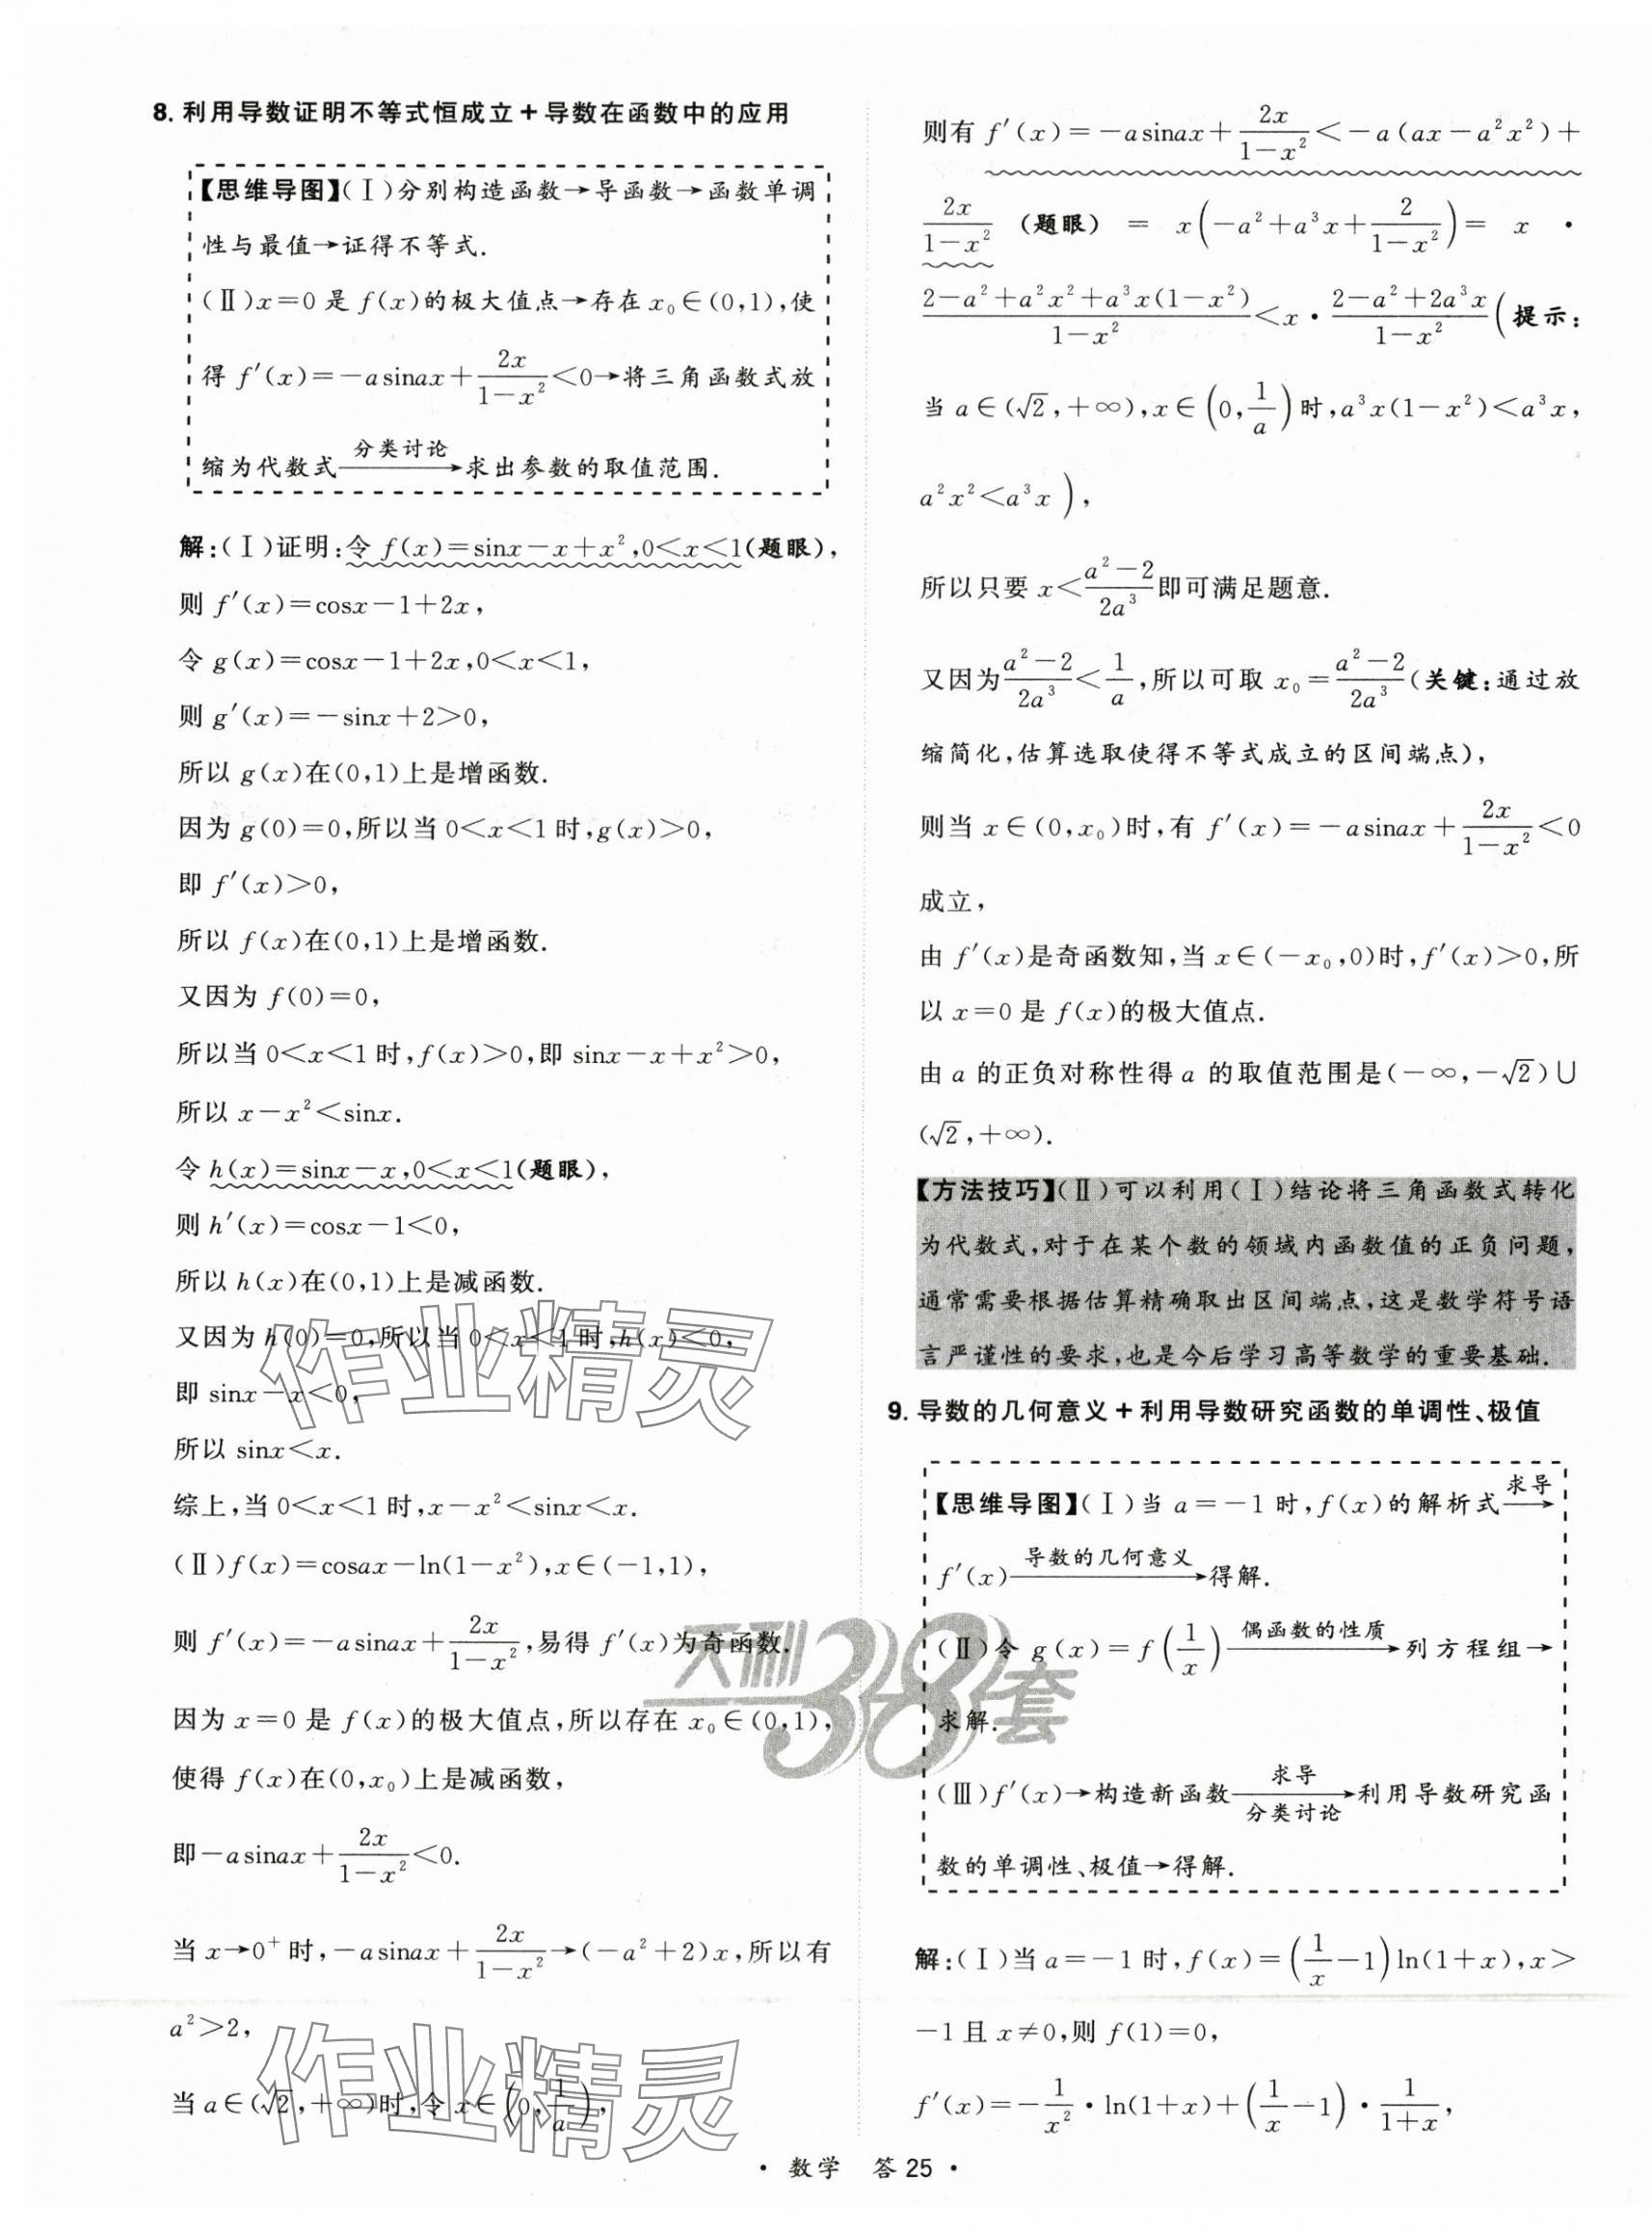 8. 利用导数证明不等式恒成立+导数在函数中的应用
【思维导图】(Ⅰ)分别构造函数→导函数→函数单调
性与最值→证得不等式.
(Ⅱ)x=0 是 f(x)的极大值点→存在 x₀∈(0,1),使
得 f′(x)=-asinax+2x/(1-x²)<0→将三角函数式放
缩为代数式 —分类讨论→ 求出参数的取值范围.
解:(Ⅰ)证明:令 f(x)=sinx-x+x²,0<x<1(题眼),
则 f′(x)=cosx-1+2x,
令 g(x)=cosx-1+2x,0<x<1,
则 g′(x)=-sinx+2>0,
所以 g(x)在(0,1)上是增函数.
因为 g(0)=0,所以当 0<x<1 时,g(x)>0,
即 f′(x)>0,
所以 f(x)在(0,1)上是增函数.
又因为 f(0)=0,
所以当 0<x<1 时,f(x)>0,即 sinx-x+x²>0,
所以 x-x²<sinx.
令 h(x)=sinx-x,0<x<1(题眼),
则 h′(x)=cosx-1<0,
所以 h(x)在(0,1)上是减函数.
又因为 h(0)=0,所以当 0<x<1 时,h(x)<0,
即 sinx-x<0,
所以 sinx<x.
综上,当 0<x<1 时,x-x²<sinx<x.
(Ⅱ)f(x)=cosax-ln(1-x²),x∈(-1,1),
则 f′(x)=-asinax+2x/(1-x²),易得 f′(x)为奇函数.
因为 x=0 是 f(x)的极大值点,所以存在 x₀∈(0,1),
使得 f(x)在(0,x₀)上是减函数,
即-asinax+2x/(1-x²)<0.
当 x→0⁺时,-asinax+2x/(1-x²)→(-a²+2)x,所以有
a²>2,
当 a∈(√2,+∞)时,令 x∈(0,1/a),
则有 f′(x)=-asinax+2x/(1-x²)<-a(ax-a²x²)+
2x/(1-x²) (题眼) = x(-a²+a³x+2/(1-x²))= x ·
(2-a²+a²x²+a³x(1-x²))/(1-x²)<x·(2-a²+2a³x)/(1-x²)(提示:
当 a∈(√2,+∞),x∈(0,1/a)时,a³x(1-x²)<a³x,
a²x²<a³x),
所以只要 x<(a²-2)/2a³即可满足题意.
又因为(a²-2)/2a³<1/a,所以可取 x₀=(a²-2)/2a³(关键:通过放
缩简化,估算选取使得不等式成立的区间端点),
则当 x∈(0,x₀)时,有 f′(x)=-asinax+2x/(1-x²)<0
成立,
由 f′(x)是奇函数知,当 x∈(-x₀,0)时,f′(x)>0,所
以 x=0 是 f(x)的极大值点.
由 a 的正负对称性得 a 的取值范围是(-∞,-√2)∪
(√2,+∞).
【方法技巧】(Ⅱ)可以利用(Ⅰ)结论将三角函数式转化
为代数式,对于在某个数的领域内函数值的正负问题,
通常需要根据估算精确取出区间端点,这是数学符号语
言严谨性的要求,也是今后学习高等数学的重要基础.
9. 导数的几何意义+利用导数研究函数的单调性、极值
【思维导图】(Ⅰ)当 a=-1 时,f(x)的解析式 —求导→
f′(x) —导数的几何意义→ 得解.
(Ⅱ)令 g(x)=f(1/x) —偶函数的性质→ 列方程组→
求解.
(Ⅲ)f′(x)→构造新函数 —求导 分类讨论→ 利用导数研究函
数的单调性、极值→得解.
解:(Ⅰ)当 a=-1 时,f(x)=(1/x-1)ln(1+x),x>
-1 且 x≠0,则 f(1)=0,
f′(x)=-1/x²·ln(1+x)+(1/x-1)·1/(1+x),
· 数学 答 25 ·
作业精灵
天利38套
作业精灵